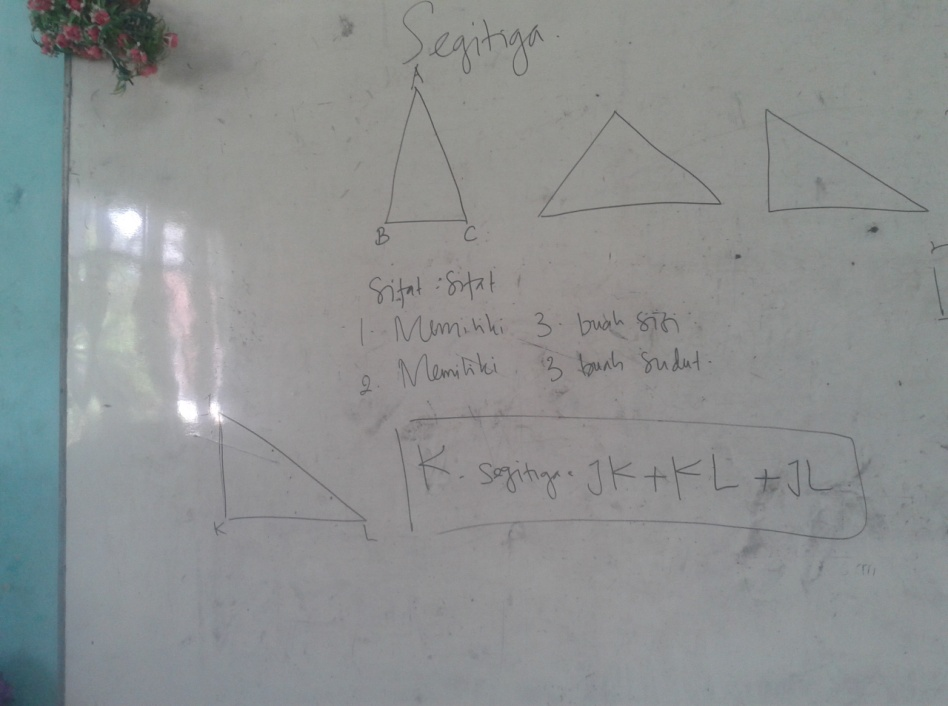 Segitiga.
A
B C
Sifat : Sifat
1. Memiliki 3. buah sisi
2. Memiliki 3 buah sudut.
K L
K. Segitiga = JK + KL + JL